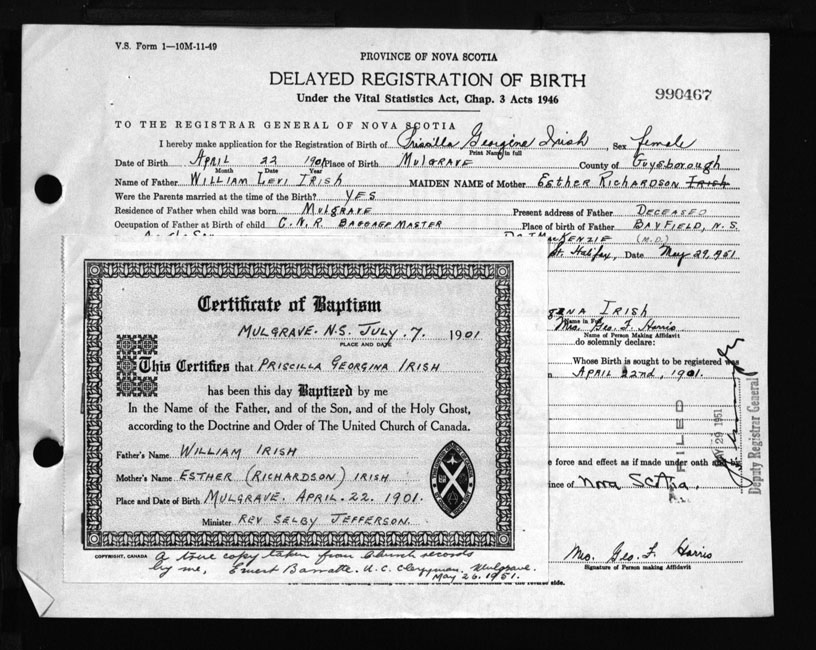 V.S. Form 1—10M-11-49
PROVINCE OF NOVA SCOTIA
DELAYED REGISTRATION OF BIRTH
Under the Vital Statistics Act, Chap. 3 Acts 1946
990467
TO THE REGISTRAR GENERAL OF NOVA SCOTIA
I hereby make application for the Registration of Birth of Priscilla Georgina Irish, Sex female
Print Name in full
Date of Birth APRIL 22 1901 Place of Birth MULGRAVE County of Guysborough
Month Date Year
Name of Father WILLIAM LEVI IRISH MAIDEN NAME of Mother ESTHER RICHARDSON IRISH
Were the Parents married at the time of the Birth? YES
Residence of Father when child was born MULGRAVE Present address of Father DECEASED
Occupation of Father at Birth of child C.N.R. BAGGAGE MASTER Place of birth of Father BAYFIELD, N.S.
MACKENZIE (M.D.)
St. Halifax, Date May 29, 1951
Certificate of Baptism
MULGRAVE. N.S. JULY. 7. 1901
PLACE AND DATE
This Certifies that PRISCILLA GEORGINA IRISH
has been this day Baptized by me
In the Name of the Father, and of the Son, and of the Holy Ghost,
according to the Doctrine and Order of The United Church of Canada.
Father's Name WILLIAM IRISH
Mother's Name ESTHER (RICHARDSON) IRISH
Place and Date of Birth MULGRAVE. APRIL. 22. 1901.
Minister REV SELBY JEFFERSON.
COPYRIGHT, CANADA
A true copy taken from Church records
by me, Ernest U.C. Clergyman, Mulgrave.
May 26. 1951.
INA IRISH
Name in Full
Mrs. Geo. F. Harris
Name of Person Making Affidavit
do solemnly declare:
Whose Birth is sought to be registered was
APRIL 22nd, 1901.
FILED
MAY 29 1951
Deputy Registrar General
e force and effect as if made under oath and by
ince of Nova Scotia.
Mrs. Geo. F. Harris
Signature of Person making Affidavit
on the reverse side.